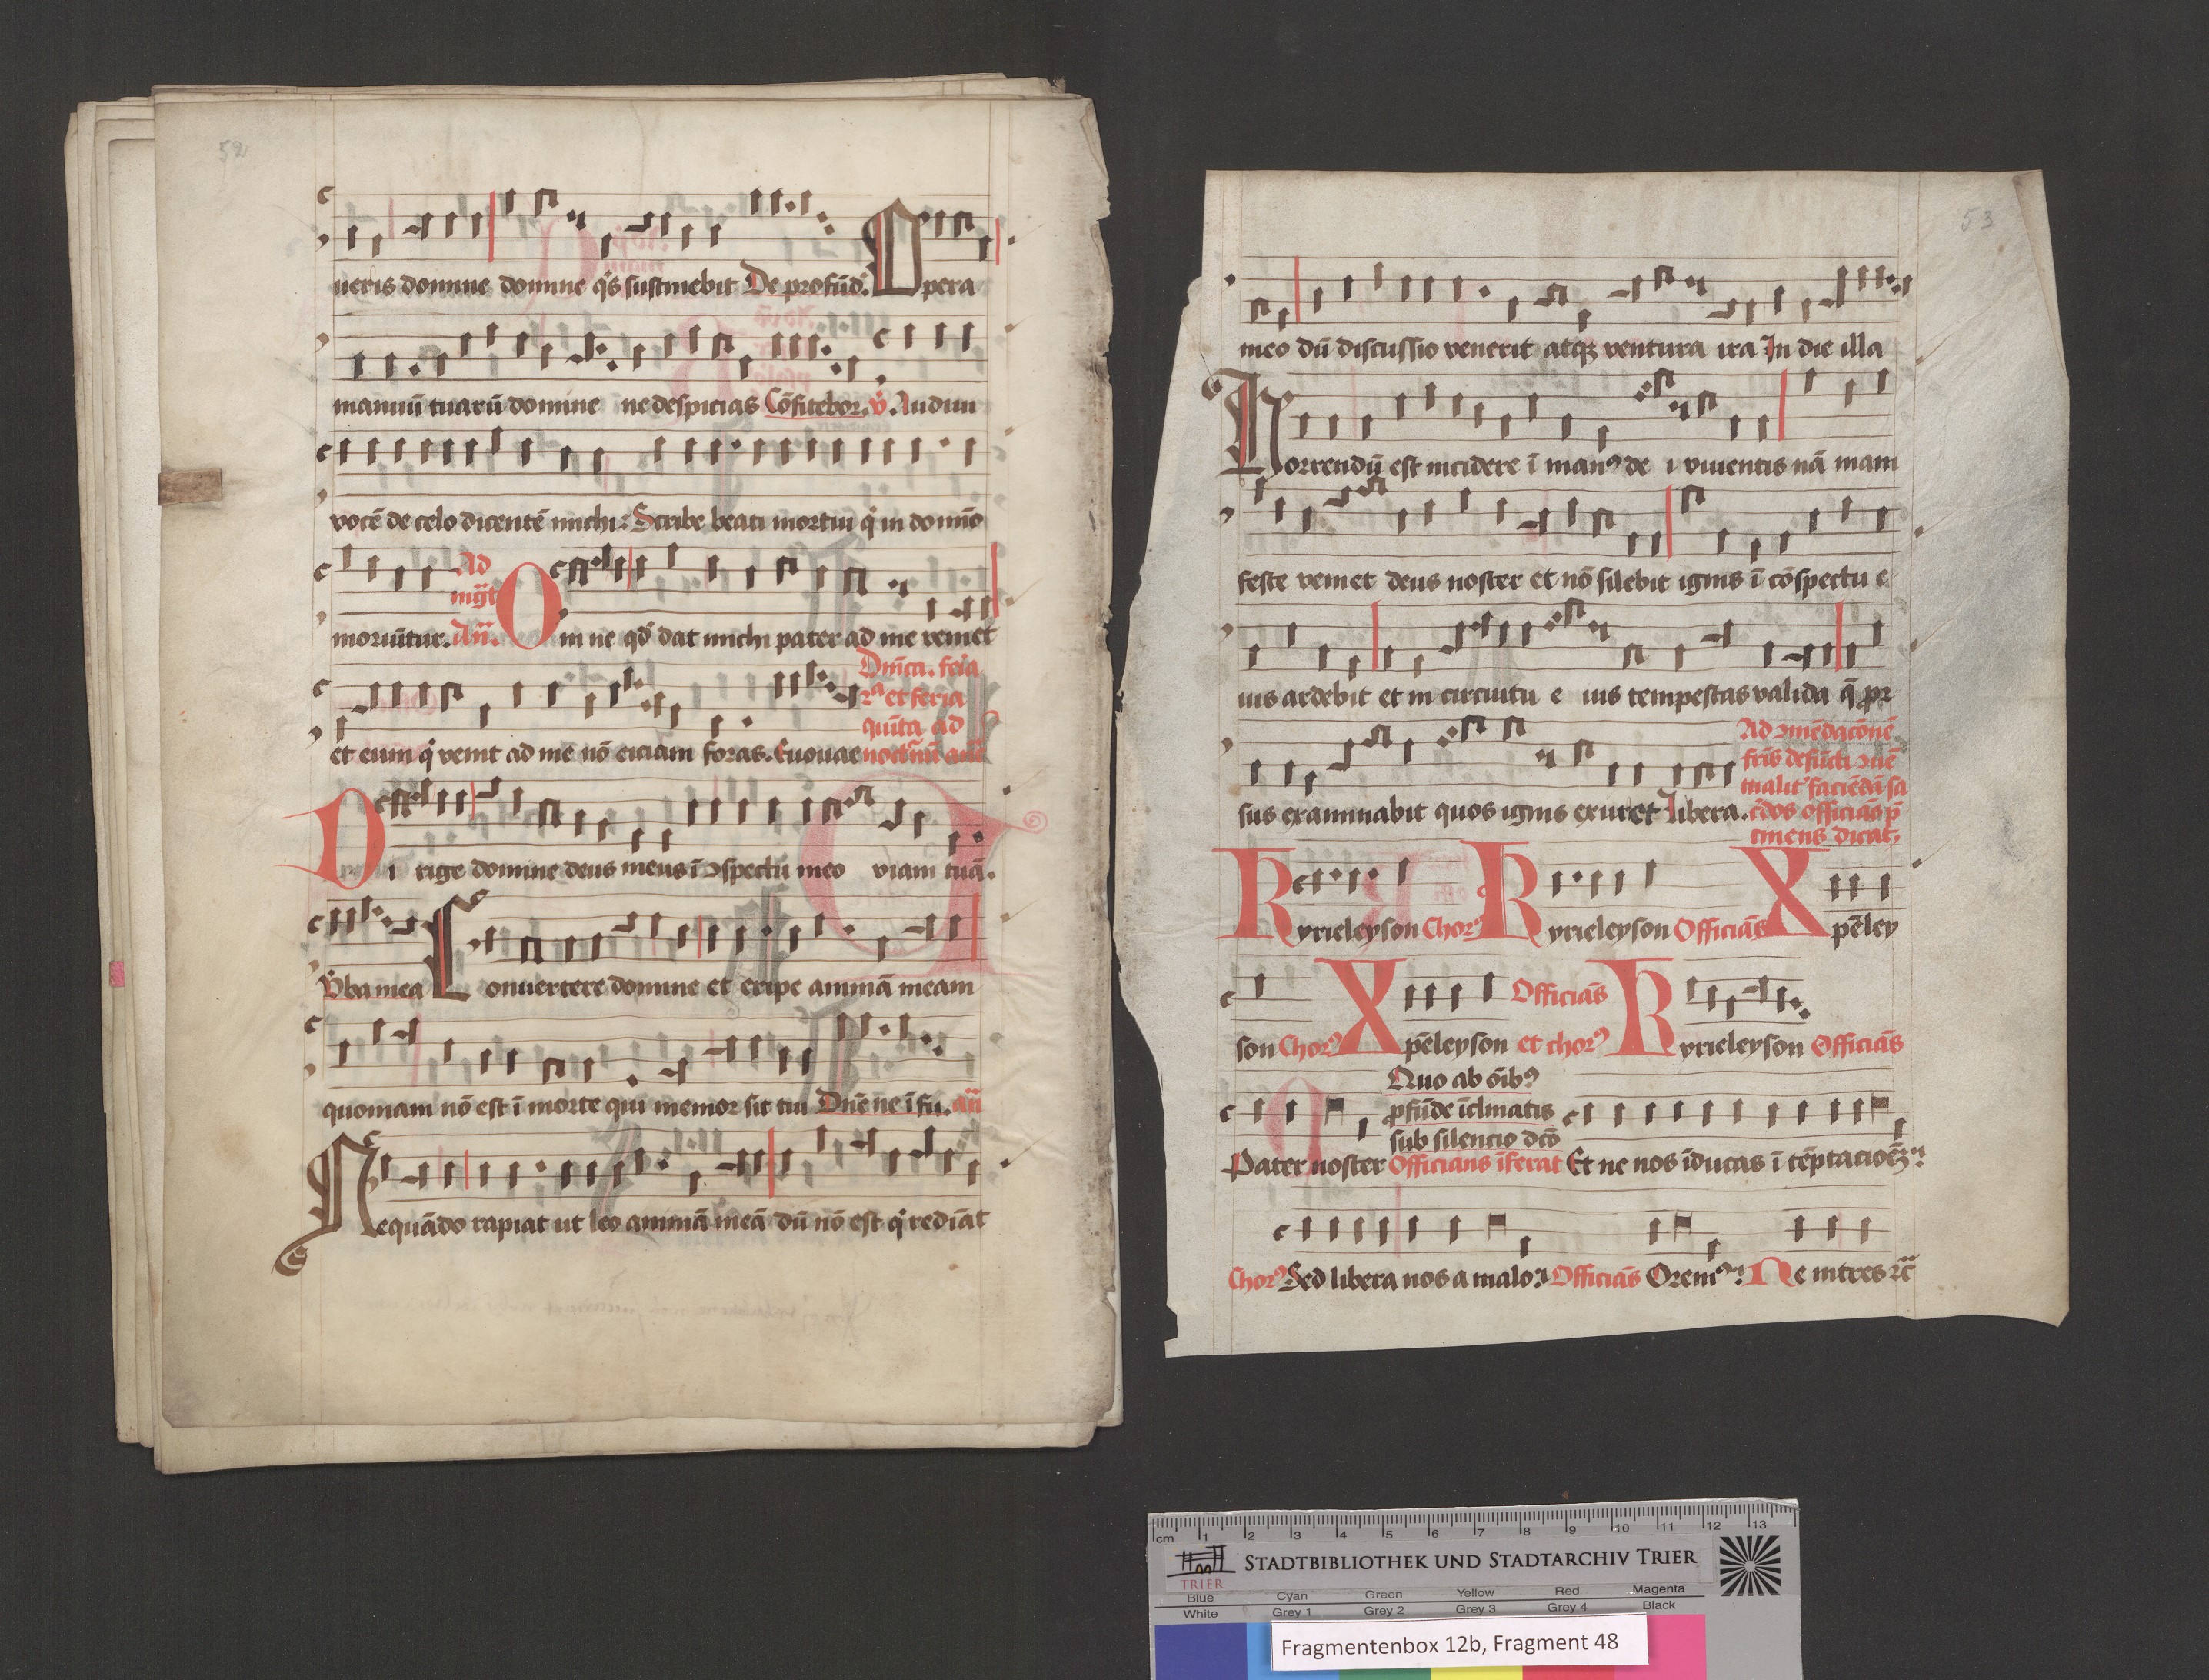 52
ueris domine domine q̇s sustinebit De profūd̄. Opera
manuū tuarū domine ne despicias Cōfitebor. v̇. Audiui
vocē de celo dicentē michi: Scribe beati mortui q̇ in domīo
Ad
mg̅t
moriūtur. Añ. Om ne qd̄ dat michi pater ad me veniet
Dn̄ica. feīa
2ª et feria
quīta ad
et eum q̇ venit ad me nō eiciam foras. Euouae noct̄nū añe
Di rige domine deus meus ī ꝯspectu meo viam tuā.
V̄ba mea Conuertere domine et eripe animā meam
quoniam nō est ī morte qui memor sit tui Dn̄e ne ī fu. añ
Nequādo rapiat ut leo animā meā dū nō est q̇ rediāt
53
meo dū discussio venerit atqꝫ ventura ira In die illa
Horrendū est incidere ī manꝰ de i viuentis nā mani
feste veniet deus noster et nō silebit ignis ī cōspectu e
ius ardebit et in circuitu e ius tempestas valida q̄ pr
Ad ꝯmēdacōnē
fr̄is defūcti ꝯuē
tualit᷑ faciēdā sa
sus examinabit quos ignis exuret Libera. c̄dos officiās p̄
tinens dicat.
Kyrieleyson Chorꝰ Kyrieleyson Officiās Xp̄eley
son Chorꝰ Xp̄eleyson et chorꝰ Officiās Kyrieleyson Officiās
Quo ab oīb̄ꝰ
ꝓfūde īclinatis
sub silencio dc̄o
Pater noster Officians īferat Et ne nos īducas ī tēptacioēꝫ
Chorꝰ Sed libera nos a malo. Officiās Oremꝰ. Ne intres ⁊c̄
cm 1 2 3 4 5 6 7 8 9 10 11 12 13
TRIER
STADTBIBLIOTHEK UND STADTARCHIV TRIER
Blue Cyan Green Yellow Red Magenta
White Grey 1 Grey 2 Grey 3 Grey 4 Black
Fragmentenbox 12b, Fragment 48